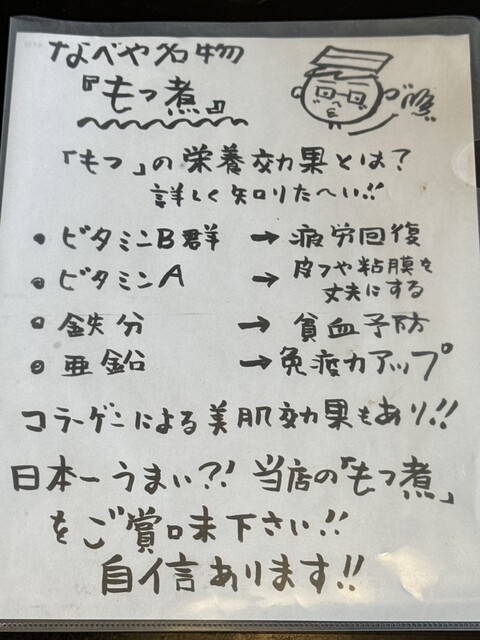 なべや名物
『もつ煮』
「もつ」の栄養効果とは?
詳しく知りた〜い!!
• ビタミンB群 → 疲労回復
• ビタミンA → 皮フや粘膜を
丈夫にする
• 鉄分 → 貧血予防
• 亜鉛 → 免疫力アップ
コラーゲンによる美肌効果もあり!!
日本一うまい?! 当店の「もつ煮」
をご賞味下さい!!
自信あります!!